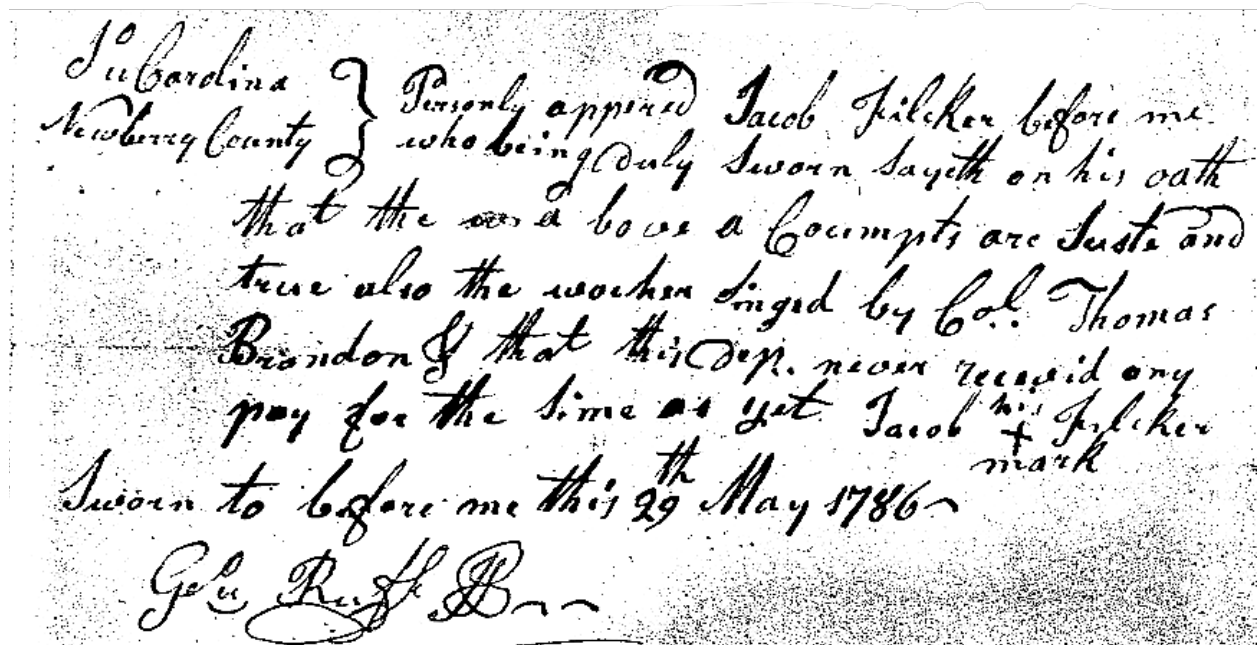 So Carolina } Personly appered Jacob Filcker before me
Newberry County } who being duly Sworn Sayeth on his oath
that the a bove a Coumpts are Juste and
true also the vocher Singed by Col. Thomas
Brandon & that this Dep. never receevid any
pay for the Sime as yet Jacob his + Filcker
mark
Sworn to before me this 29th May 1786
Ruff